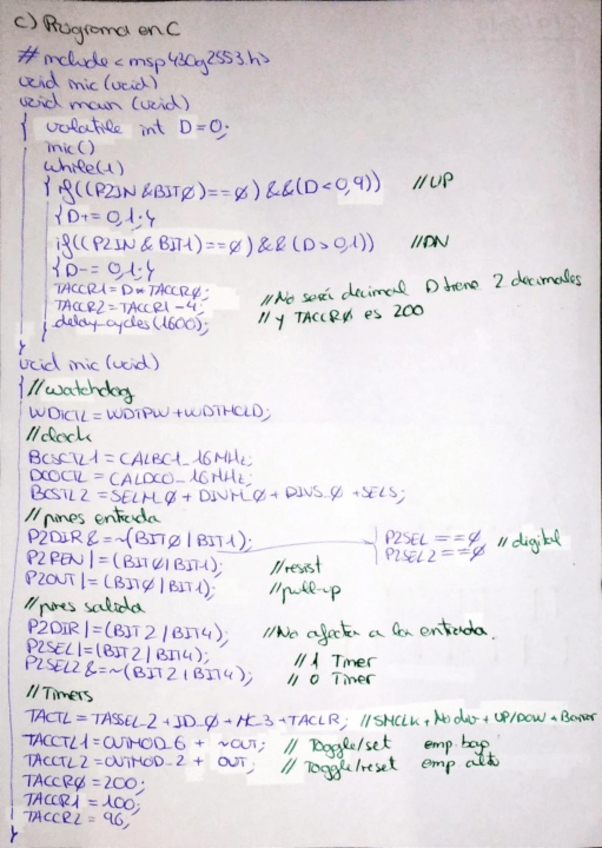 c) Programa en C
#include <msp430g2553.h>
void inic (void)
void main (void)
{ volatile int D=0;
inic()
while(1)
{ if((P2IN &BITØ)==Ø) &&(D<0,9)) //UP
{D+= 0,1;}
if((P2IN & BIT1)==Ø) && (D>0,1)) //DN
{D-= 0,1;}
TACCR1= D*TACCRØ; //No será decimal D tiene 2 decimales
TACCR2= TACCR1-4; // y TACCRØ es 200
delay_cycles(1600);
}
void inic (void)
{ //watchdog
WDTCTL = WDTPW +WDTHOLD;
//clock
BCSCTL1 = CALBC1_16MHz;
DCOCTL = CALDCO_16MHz;
BCSTL2 = SELM_Ø + DIVM_Ø + DIVS_Ø +SELS;
//pines entrada
P2DIR &=~(BITØ | BIT1); P2SEL ==Ø // digital
P2REN |=(BITØ|BIT1); //resist P2SEL2==Ø
P2OUT |= (BITØ | BIT1); //pull-up
//pines salida
P2DIR |=(BIT2 | BIT4); //No afecta a la entrada.
P2SEL|=(BIT2 | BIT4); //1 Timer
P2SEL2 &=~(BIT2 | BIT4); // 0 Timer
//Timers
TACTL = TASSEL_2 + ID_Ø + MC_3 +TACLR; //SMCLK + No div + UP/DOW + Borrar
TACCTL1=OUTMOD_6 + ~OUT; // Toggle/set emp. bajo
TACCTL2 = OUTMOD_2 + OUT; // Toggle/reset emp alto
TACCRØ = 200;
TACCR1 = 100;
TACCR2 = 96;
}